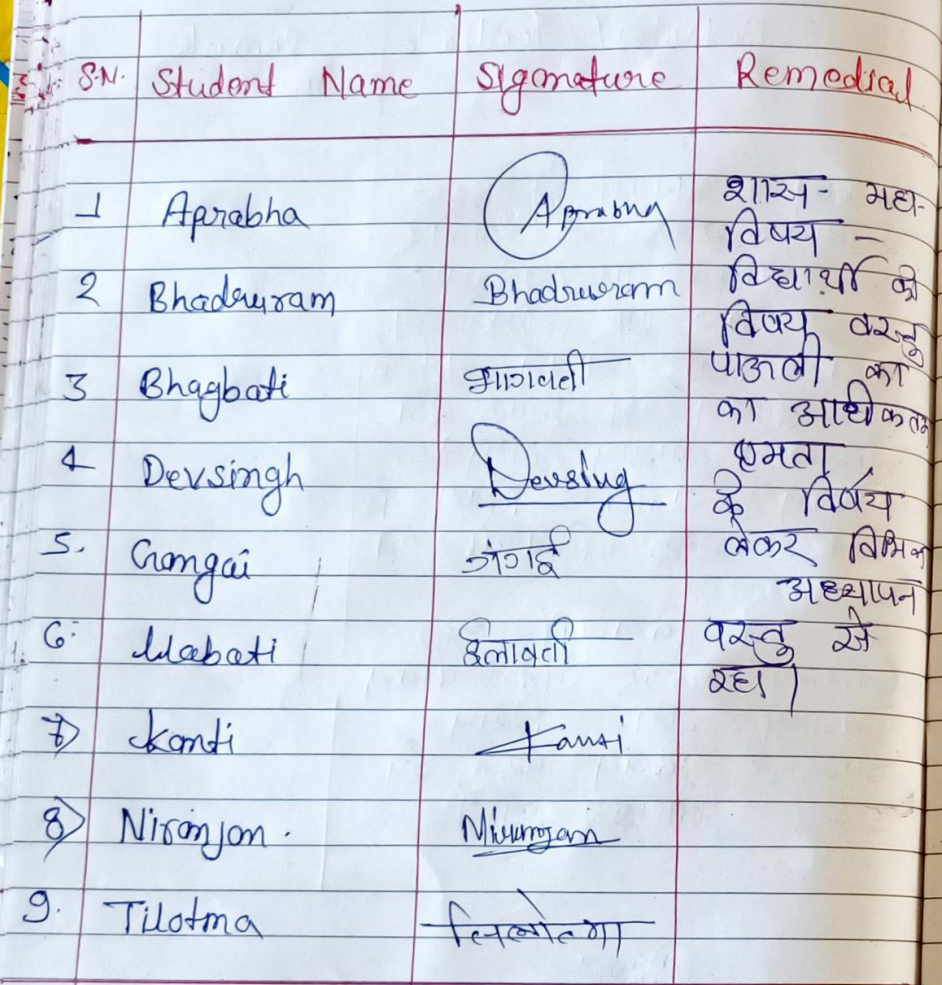 S.N. Student Name Sigmature Remedial
1 Aprabha Aprabha शास- महा-
विषय -
2 Bhadruram Bhadruram विद्यार्थी की
विषय वस्तु
3 Bhagbati भागवती पाऊली का
का आधीकतम
4 Devsingh Devsing क्षमता
के विषय
5. Gangai गंगई लेकर विभिन
अध्यापन
6. Ilabati ईलावती वस्तु से
रहा।
7) Kanti Kanti
8) Niranjan. Niranjan
9. Tilotma तिलोत्मा